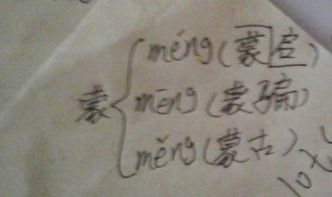 蒙
méng(蒙启)
mēng(蒙骗)
měng(蒙古)